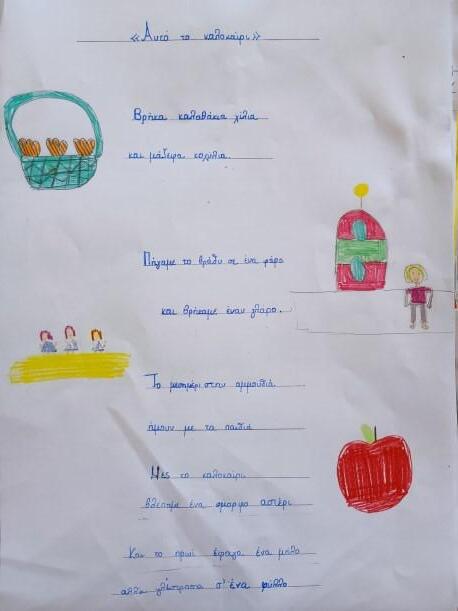 «Αυτό το καλοκαίρι»
Βρήκα καλαθάκια χίλια
και μάζεψα κοχύλια.
Πήγαμε το βράδυ σε ένα φάρο
και βρήκαμε έναν γλάρο.
Το μεσημέρι στην αμμουδιά
ήμουν με τα παιδιά
Μες το καλοκαίρι
βλέπαμε ένα όμορφο αστέρι
Και το πρωί έφαγα ένα μήλο
αλλά γλίστρησα σ' ένα φύλλο